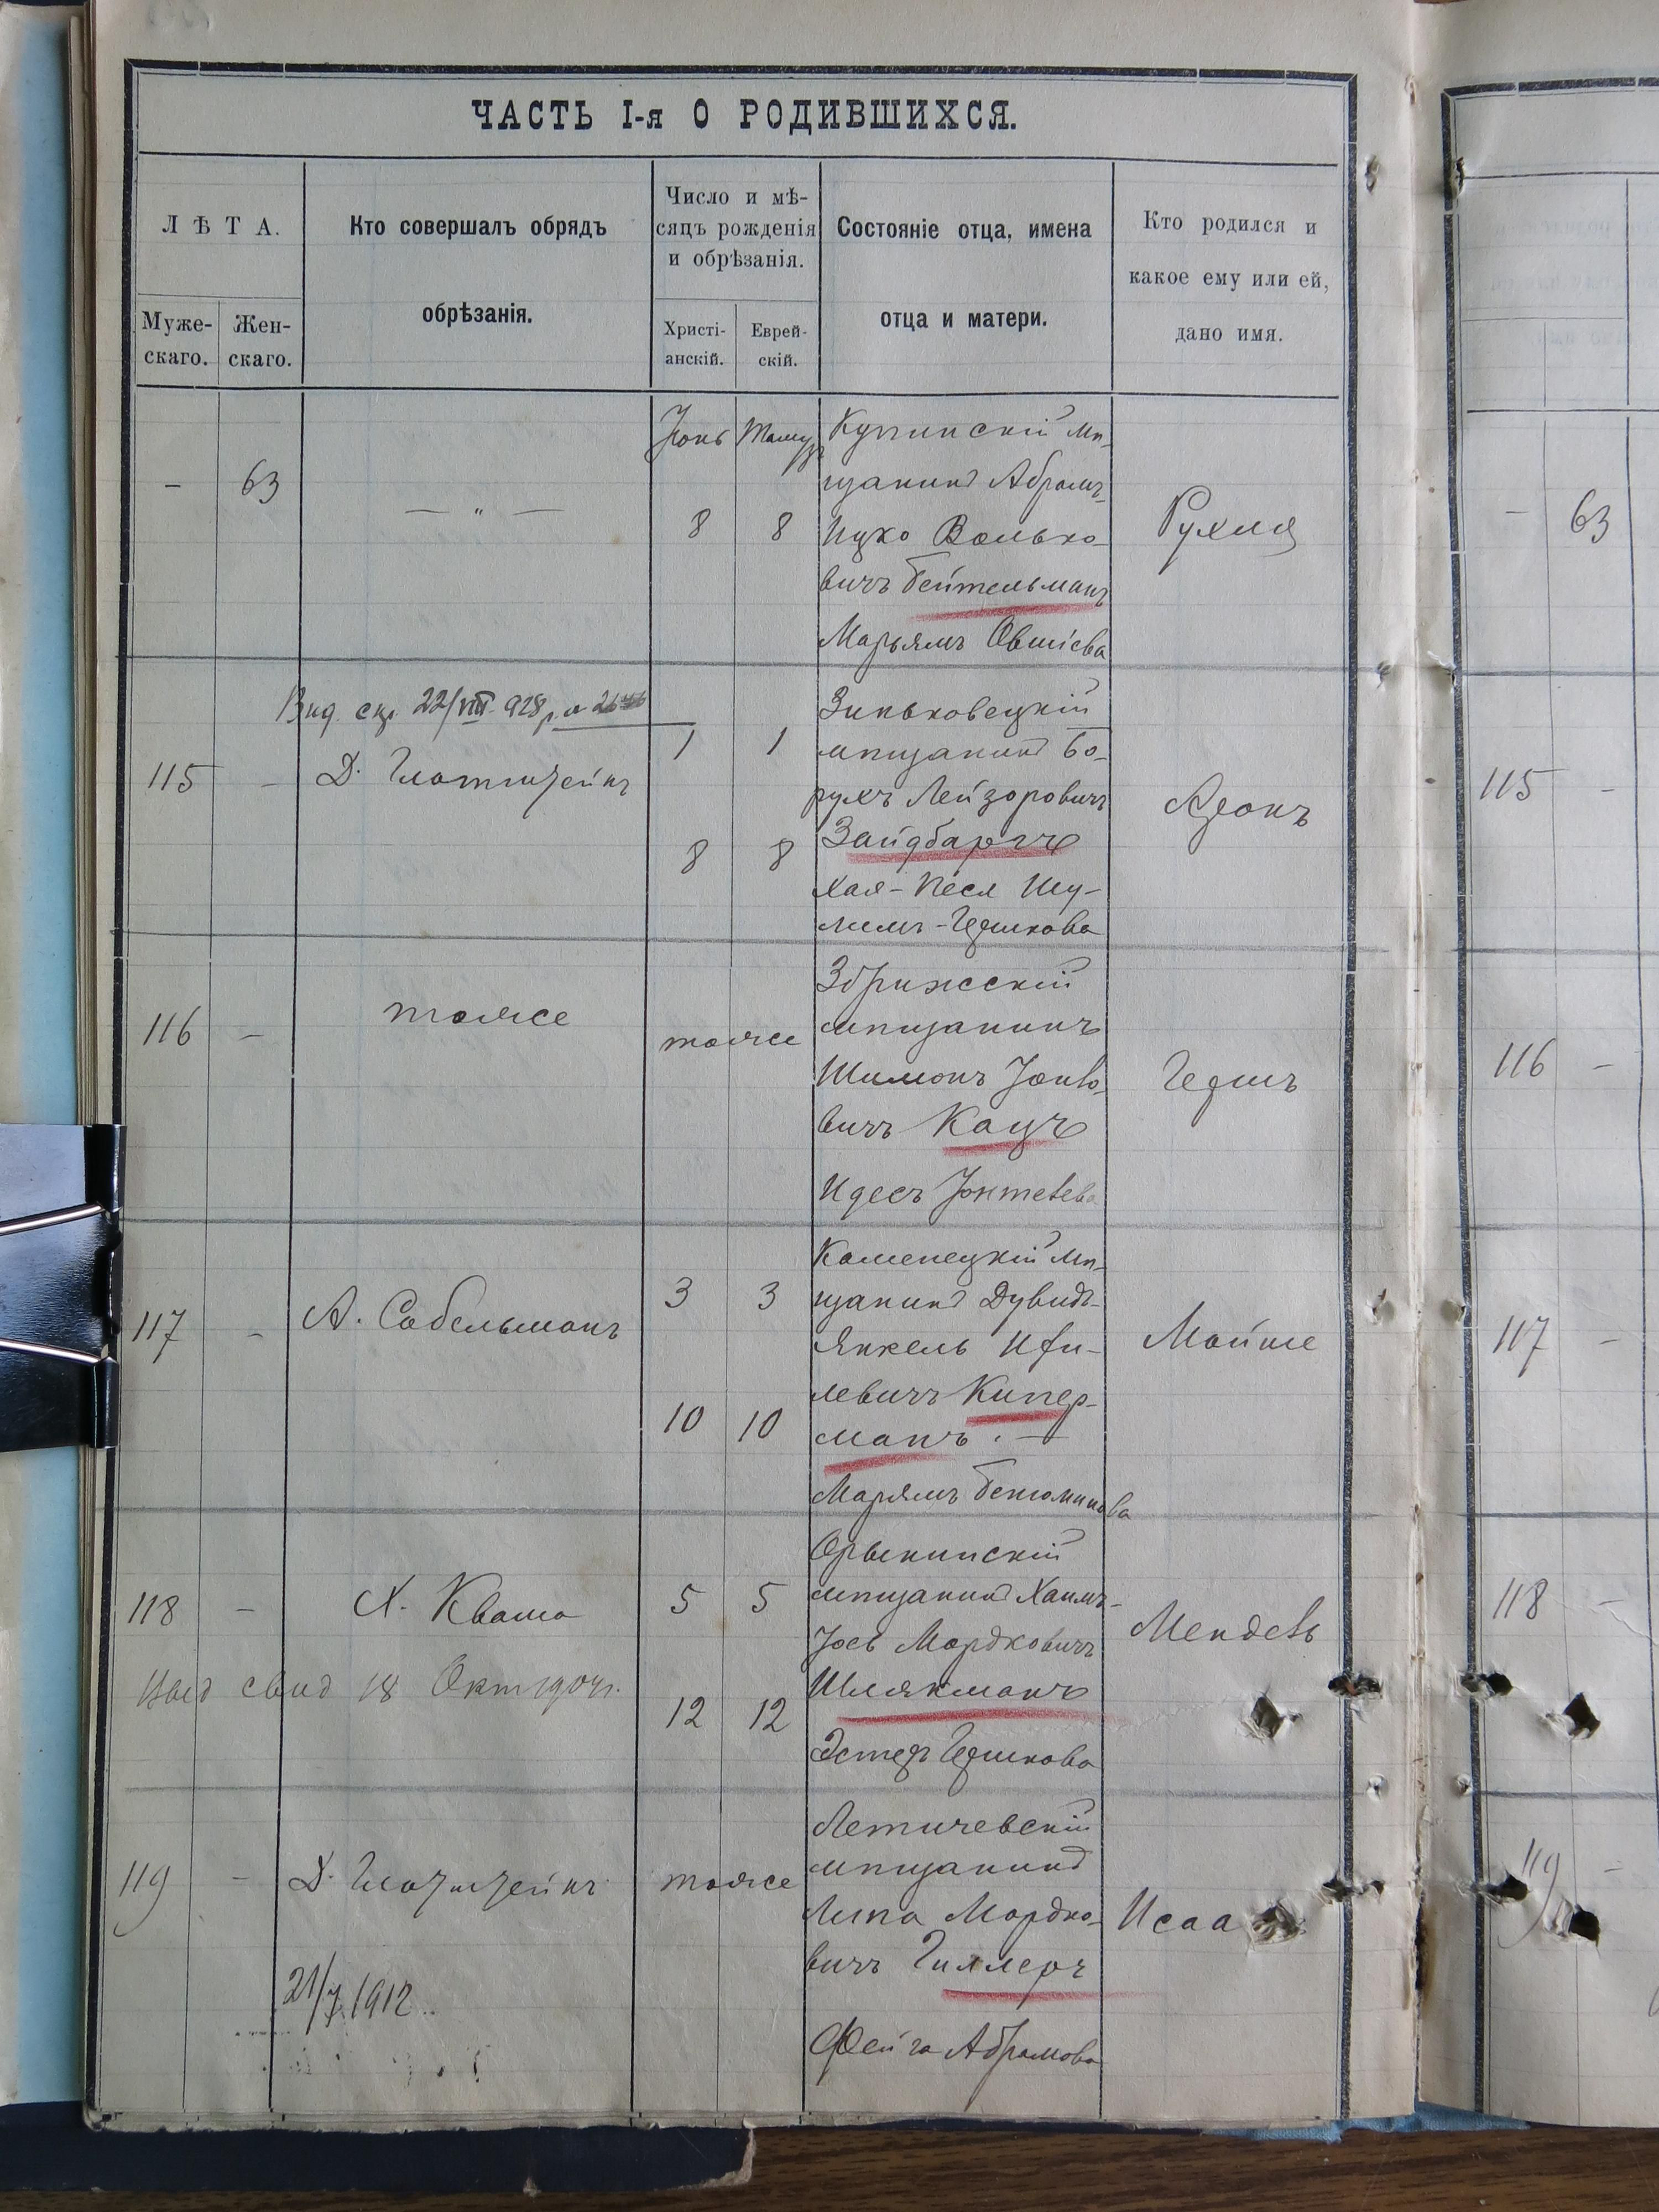 ЧАСТЬ I-я О РОДИВШИХСЯ.
ЛѢТА.
Муже-
скаго.
Жен-
скаго.
Кто совершалъ обрядъ
обрѣзанія.
Число и мѣ-
сяцъ рожденія
и обрѣзанія.
Христі-
анскій.
Еврей-
скій.
Состояніе отца, имена
отца и матери.
Кто родился и
какое ему или ей,
дано имя.
- 63
— „ —
Іюнь
8
8
Купинскій мѣ-
щанинъ Абрамъ-
Ицко Волько-
вичъ Бейтельманъ
Марьямъ Овшіева
Рухля
- 63
Вид. 22/VIII 928 р.
115 -
Д. Глотштейнъ
1 1
8 8
Зиньковецкій
мѣщанинъ Бо-
рухъ Лейзоровичъ
Зайдбаргъ
Хая-Песя Шу-
лимъ-Гершкова
Аронъ
115 -
116 -
тоже
тоже
Збрижскій
мѣщанинъ
Шимонъ
вичъ Кацъ
Идесъ
Гершъ
116 -
117 -
А. Сабельманъ
3 3
10 10
Каменецкій мѣ-
щанинъ Дувидъ-
Янкель
левичъ Кипер-
манъ. —
Марямъ Беньоминова
Мойше
117 -
118 -
Х. Кваша
Выд свид 18 Окт 1904 г.
5 5
12 12
Орынинскій
мѣщанинъ Хаимъ-
Іось Мордковичъ
Шлякманъ
Эстеръ Гершкова
Мендель
118 -
119 -
Д. Глотштейнъ
21/7 1912
тоже
Летичевскій
мѣщанинъ
Липа Мордко-
вичъ Гиллеръ
Фейга Абрамова
Исаа
119 -